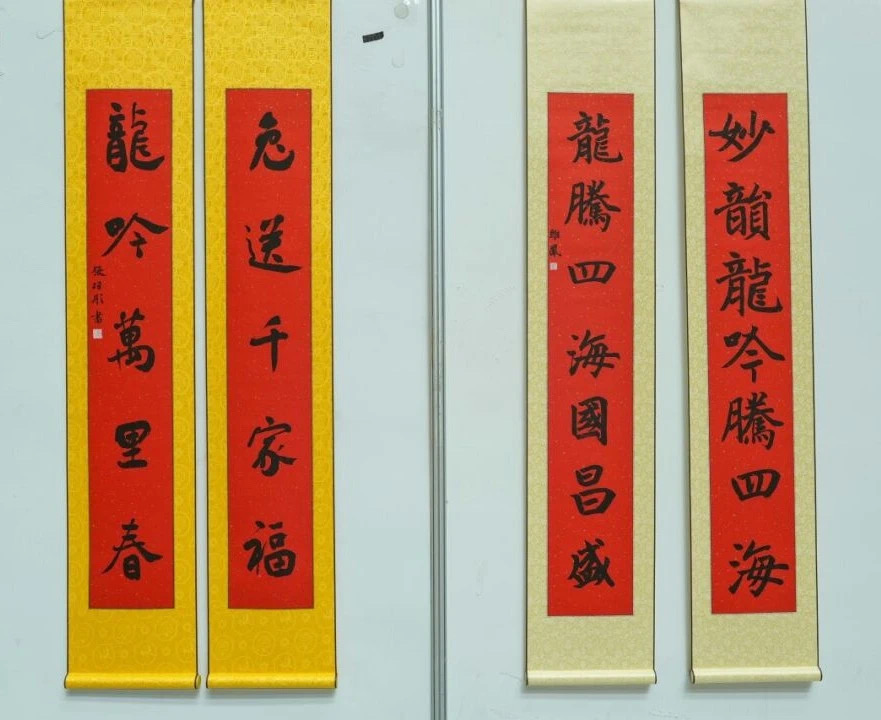 妙韻龍吟騰四海
龍騰四海國昌盛
兔送千家福
龍吟萬里春